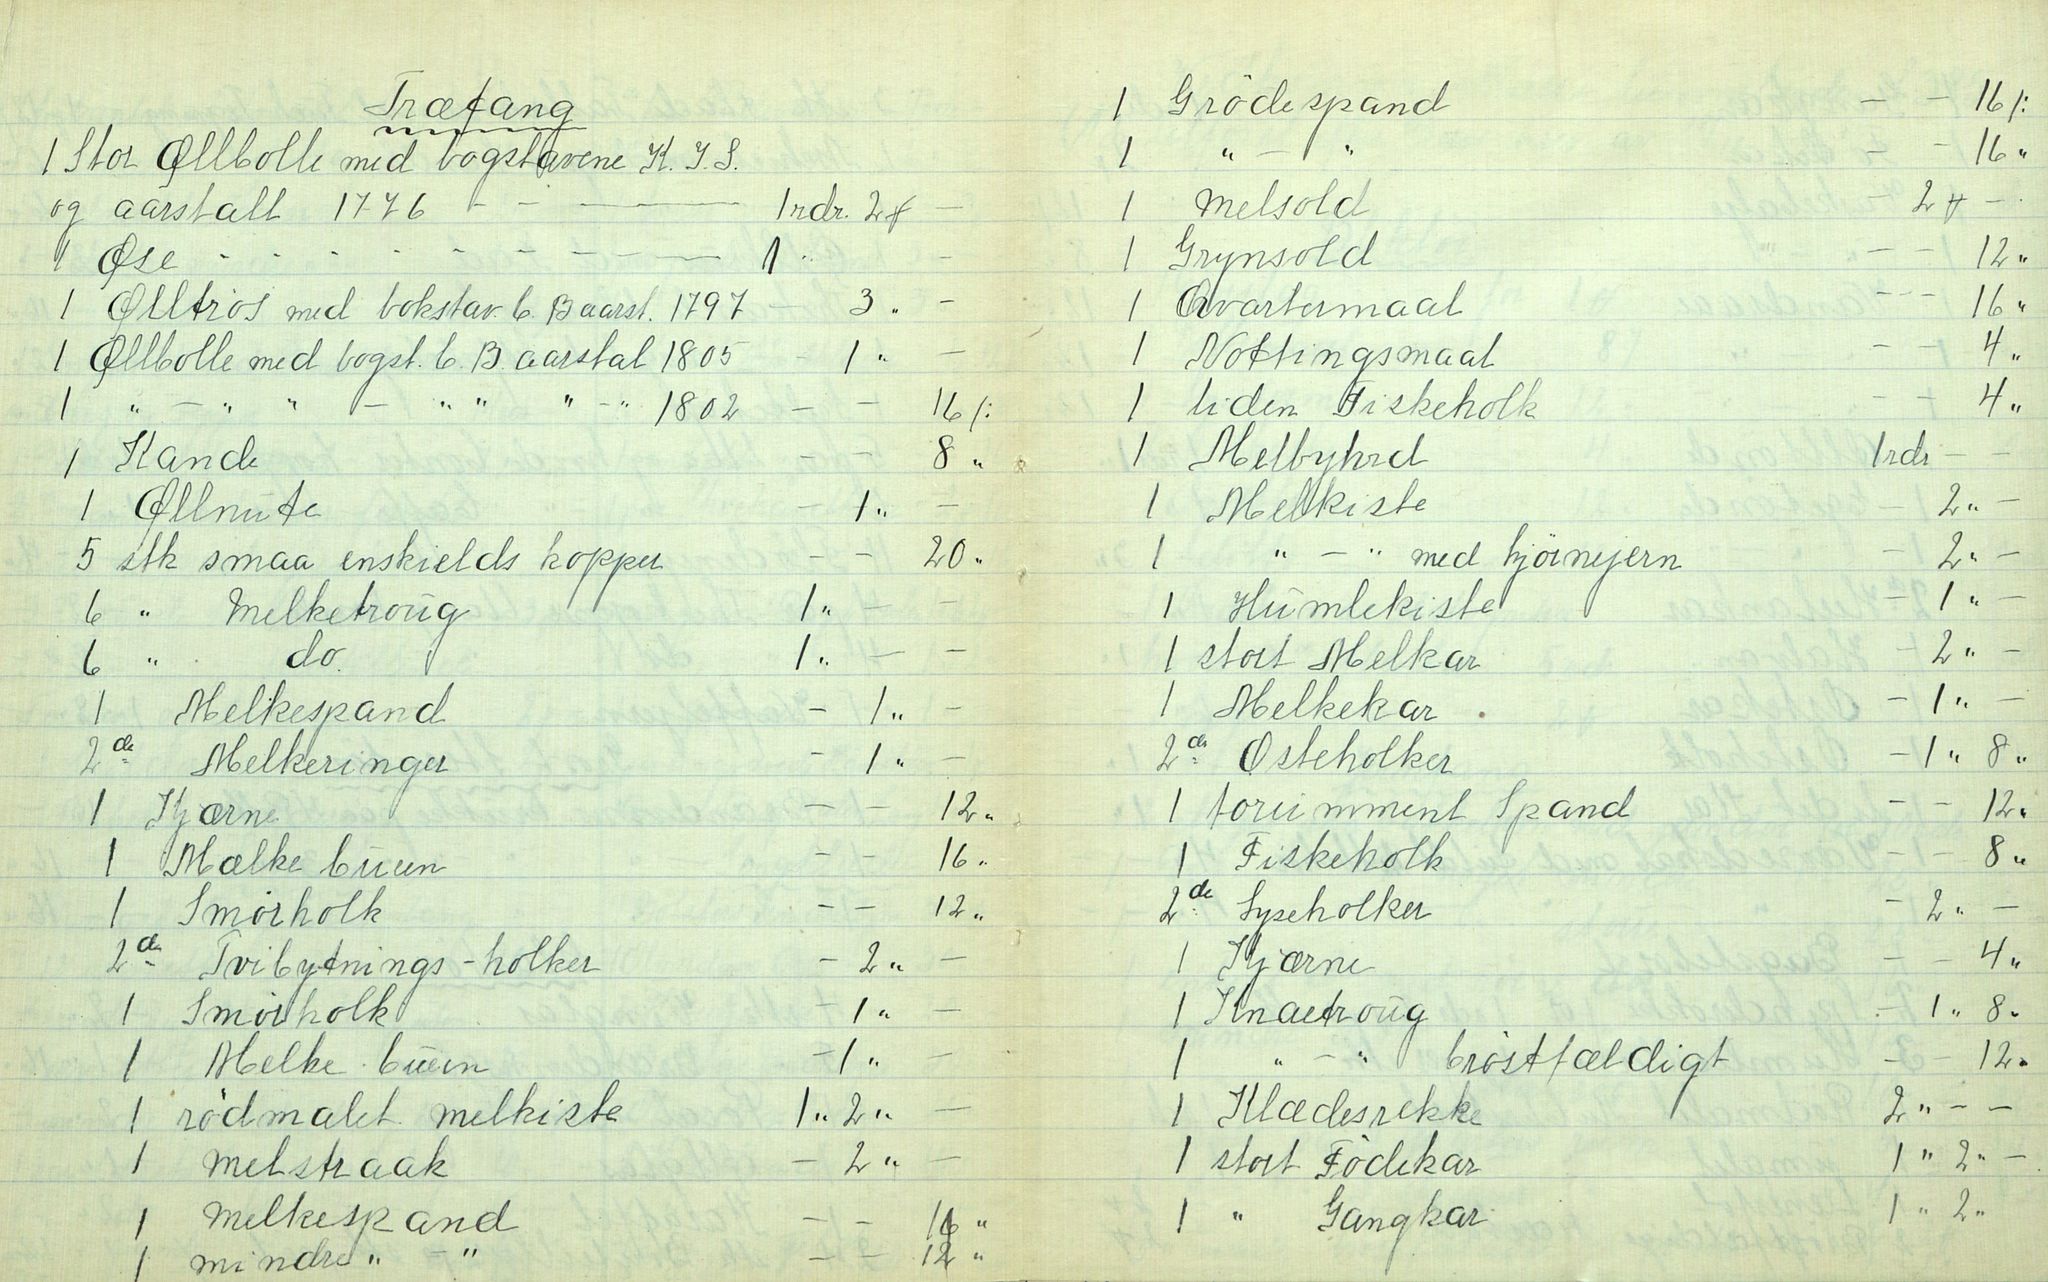 Træfang
1 Stor Øllbolle med bogstavene K. I. S.
og aarstall 1776 - - - 1 rdr. 2 ₰ -
1 Øse - - - - - - - - - 1 " -
1 Ølltros med bokstav. C. B aarst. 1797 - 3 " -
1 Øllbolle med bogst. C. B. aarstal 1805 - 1 " -
1 " - " " - " " " - " 1802 - - 16 /:
1 Kande - - 8 "
1 Øllnute - 1 " -
5 stk smaa enskields kopper - - 20 "
6 " Melketroug 1 " - -
6 " do. 1 " - -
1 Melkespand - 1 " -
2de Melkeringer - 1 " -
1 Kjærne - - 12 "
1 Mælke buen - - 16 "
1 Smörholk - - 12 "
2de Tvibytnings-holker - 2 " -
1 Smörholk 1 " -
1 Melke buen - 1 " -
1 rödmalet melkiste 1 " 2 " -
1 melstraak - 2 " -
1 Melkespand - - 16 "
1 mindre " - " - - 12 "
1 Grödespand - - 16 /:
1 " - " - - 16 "
1 Melsold - 2 ₰ -
1 Grynsold - - 12 "
1 Qvartermaal - - - 16 "
1 Nottingsmaal - - 4 "
1 liden Fiskeholk - - 4 "
1 Melbyhrd 1 rdr - -
1 Melkiste - 2 " -
1 " - " med hjörnejern - 2 " -
1 Humlekiste - 1 " -
1 stort Melkar - 2 " -
1 Melkekar - 1 " -
2de Osteholker - 1 " 8 "
1 forrimment Spand - - 12 "
1 Fiskeholk - - 8 "
2de Lyseholker - 2 " -
1 Kjærne - - 4 "
1 Knaetroug - 1 " 8 "
1 " - " bröstfældigt - - 12 "
1 Klædesrekke 2 " - -
1 stort Födekar 1 " 2 " -
1 " Gangkar 1 " 2 "